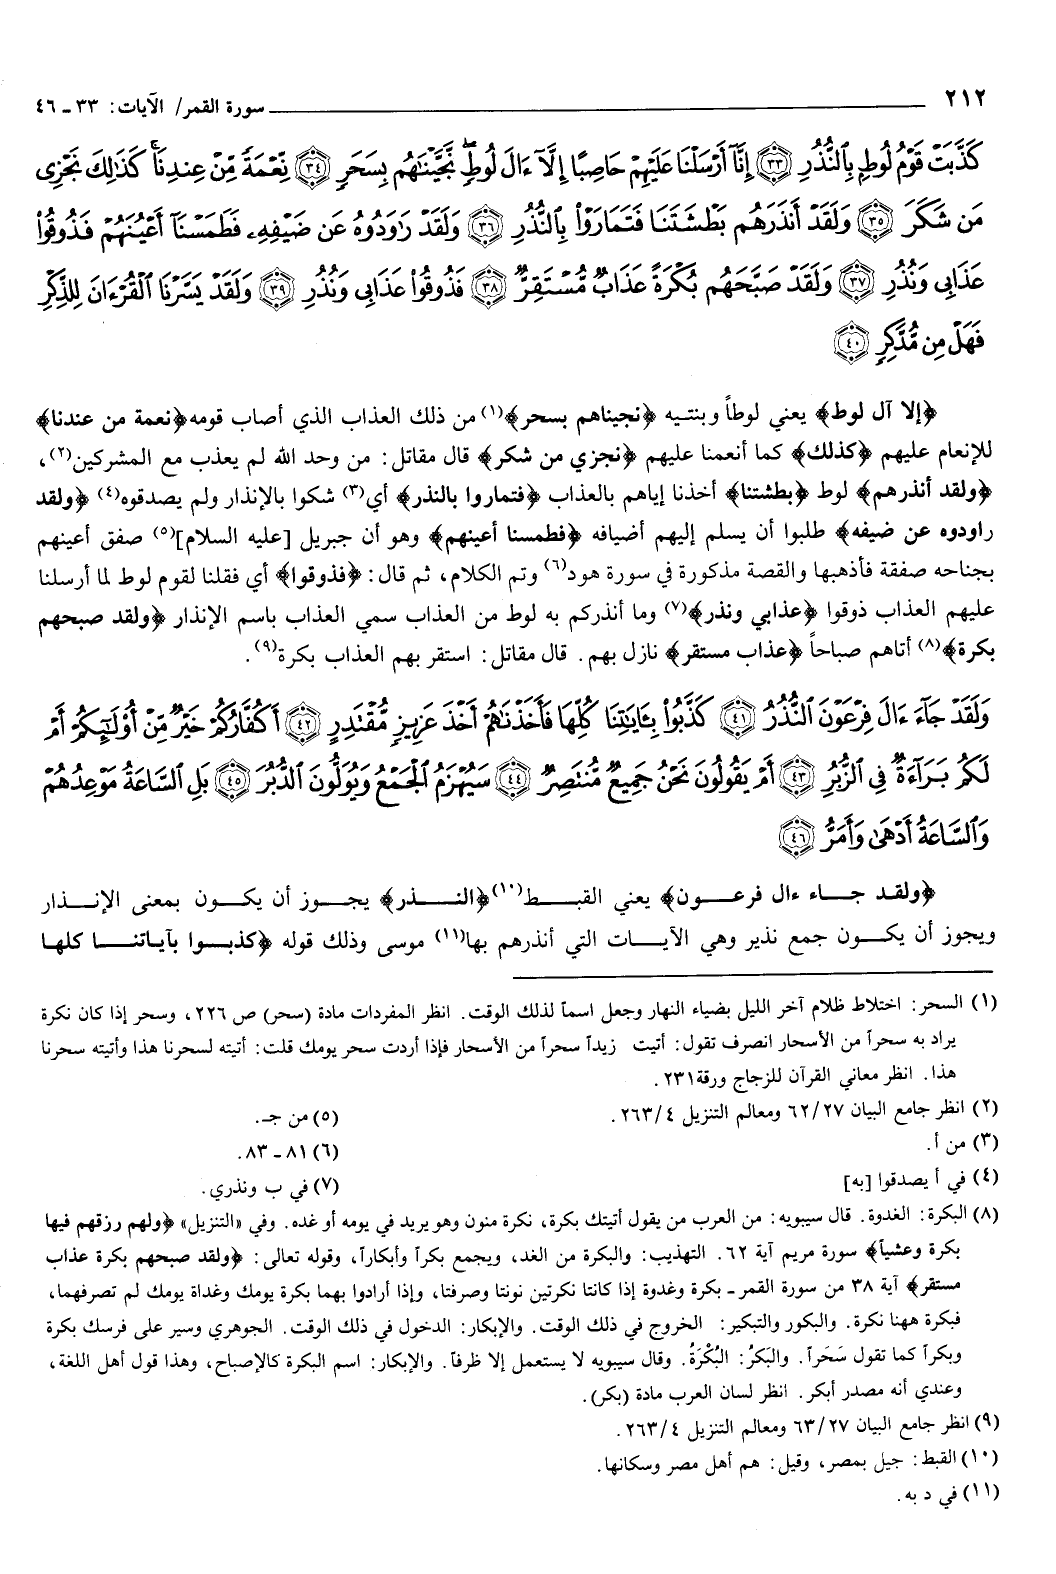 ٢١٢ سورة القمر/ الآيات: ٣٣ ـ ٤٦
كَذَّبَتْ قَوْمُ لُوطٍ بِالنُّذُرِ ٣٣ إِنَّا أَرْسَلْنَا عَلَيْهِمْ حَاصِبًا إِلَّا ءَالَ لُوطٍ نَّجَّيْنَاهُم بِسَحَرٍ ٣٤ نِّعْمَةً مِّنْ عِندِنَا كَذَلِكَ نَجْزِي
مَن شَكَرَ ٣٥ وَلَقَدْ أَنذَرَهُم بَطْشَتَنَا فَتَمَارَوْا بِالنُّذُرِ ٣٦ وَلَقَدْ رَاوَدُوهُ عَن ضَيْفِهِ فَطَمَسْنَا أَعْيُنَهُمْ فَذُوقُوا
عَذَابِي وَنُذُرِ ٣٧ وَلَقَدْ صَبَّحَهُم بُكْرَةً عَذَابٌ مُّسْتَقِرٌّ ٣٨ فَذُوقُوا عَذَابِي وَنُذُرِ ٣٩ وَلَقَدْ يَسَّرْنَا الْقُرْءَانَ لِلذِّكْرِ
فَهَلْ مِن مُّدَّكِرٍ ٤٠
﴿إلا آل لوط﴾ يعني لوطاً وبنتيه ﴿نجيناهم بسحر﴾(١) من ذلك العذاب الذي أصاب قومه ﴿نعمة من عندنا﴾
للإنعام عليهم ﴿كذلك﴾ كما أنعمنا عليهم ﴿نجزي من شكر﴾ قال مقاتل: من وحد الله لم يعذب مع المشركين(٢)،
﴿ولقد أنذرهم﴾ لوط ﴿بطشتنا﴾ أخذنا إياهم بالعذاب ﴿فتماروا بالنذر﴾ أي(٣) شكوا بالإنذار ولم يصدقوه(٤) ﴿ولقد
راودوه عن ضيفه﴾ طلبوا أن يسلم إليهم أضيافه ﴿فطمسنا أعينهم﴾ وهو أن جبريل [عليه السلام](٥) صفق أعينهم
بجناحه صفقة فأذهبها والقصة مذكورة في سورة هود(٦) وتم الكلام، ثم قال: ﴿فذوقوا﴾ أي فقلنا لقوم لوط لما أرسلنا
عليهم العذاب ذوقوا ﴿عذابي ونذر﴾(٧) وما أنذركم به لوط من العذاب سمي العذاب باسم الإنذار ﴿ولقد صبحهم
بكرة﴾(٨) أتاهم صباحاً ﴿عذاب مستقر﴾ نازل بهم. قال مقاتل: استقر بهم العذاب بكرة(٩).
وَلَقَدْ جَاءَ ءَالَ فِرْعَوْنَ النُّذُرُ ٤١ كَذَّبُوا بِـَٔايَاتِنَا كُلِّهَا فَأَخَذْنَاهُمْ أَخْذَ عَزِيزٍ مُّقْتَدِرٍ ٤٢ أَكُفَّارُكُمْ خَيْرٌ مِّنْ أُوْلَئِكُمْ أَمْ
لَكُم بَرَاءَةٌ فِي الزُّبُرِ ٤٣ أَمْ يَقُولُونَ نَحْنُ جَمِيعٌ مُّنتَصِرٌ ٤٤ سَيُهْزَمُ الْجَمْعُ وَيُوَلُّونَ الدُّبُرَ ٤٥ بَلِ السَّاعَةُ مَوْعِدُهُمْ
وَالسَّاعَةُ أَدْهَى وَأَمَرُّ ٤٦
﴿ولقد جاء ءال فرعون﴾ يعني القبط(١٠) ﴿النذر﴾ يجوز أن يكون بمعنى الإنذار
ويجوز أن يكون جمع نذير وهي الآيات التي أنذرهم بها(١١) موسى وذلك قوله ﴿كذبوا بآياتنا كلها
(١) السحر: اختلاط ظلام آخر الليل بضياء النهار وجعل اسماً لذلك الوقت. انظر المفردات مادة (سحر) ص ٢٢٦، وسحر إذا كان نكرة
يراد به سحراً من الأسحار انصرف تقول: أتيت زيداً سحراً من الأسحار فإذا أردت سحر يومك قلت: أتيته لسحرنا هذا وأتيته سحرنا
هذا. انظر معاني القرآن للزجاج ورقة٢٣١.
(٢) انظر جامع البيان ٦٢/٢٧ ومعالم التنزيل ٢٦٣/٤.
(٣) من أ.
(٤) في أ يصدقوا [به]
(٥) من جـ.
(٦) ٨١ ـ ٨٣.
(٧) في ب ونذري.
(٨) البكرة: الغدوة. قال سيبويه: من العرب من يقول أتيتك بكرة، نكرة منون وهو يريد في يومه أو غده. وفي «التنزيل» ﴿ولهم رزقهم فيها
بكرة وعشياً﴾ سورة مريم آية ٦٢. التهذيب: والبكرة من الغد، ويجمع بكراً وأبكاراً، وقوله تعالى: ﴿ولقد صبحهم بكرة عذاب
مستقر﴾ آية ٣٨ من سورة القمر ـ بكرة وغدوة إذا كانتا نكرتين نونتا وصرفتا، وإذا أرادوا بهما بكرة يومك وغداة يومك لم تصرفهما،
فبكرة ههنا نكرة. والبكور والتبكير: الخروج في ذلك الوقت. والإبكار: الدخول في ذلك الوقت. الجوهري وسير على فرسك بكرة
وبكراً كما تقول سَحَراً. والبَكَرُ: البُكْرَةُ. وقال سيبويه لا يستعمل إلا ظرفاً. والإبكار: اسم البكرة كالإصباح، وهذا قول أهل اللغة،
وعندي أنه مصدر أبكر. انظر لسان العرب مادة (بكر).
(٩) انظر جامع البيان ٦٣/٢٧ ومعالم التنزيل ٢٦٣/٤.
(١٠) القبط: جيل بمصر، وقيل: هم أهل مصر وسكانها.
(١١) في د به.